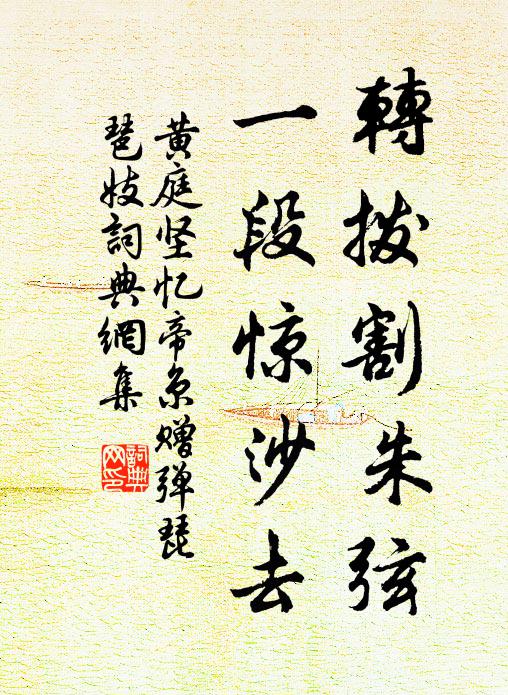 轉拨割朱弦
一段惊沙去
黄庭坚忆帝京赠弹琵
琶妓詞典網集
詞典网印